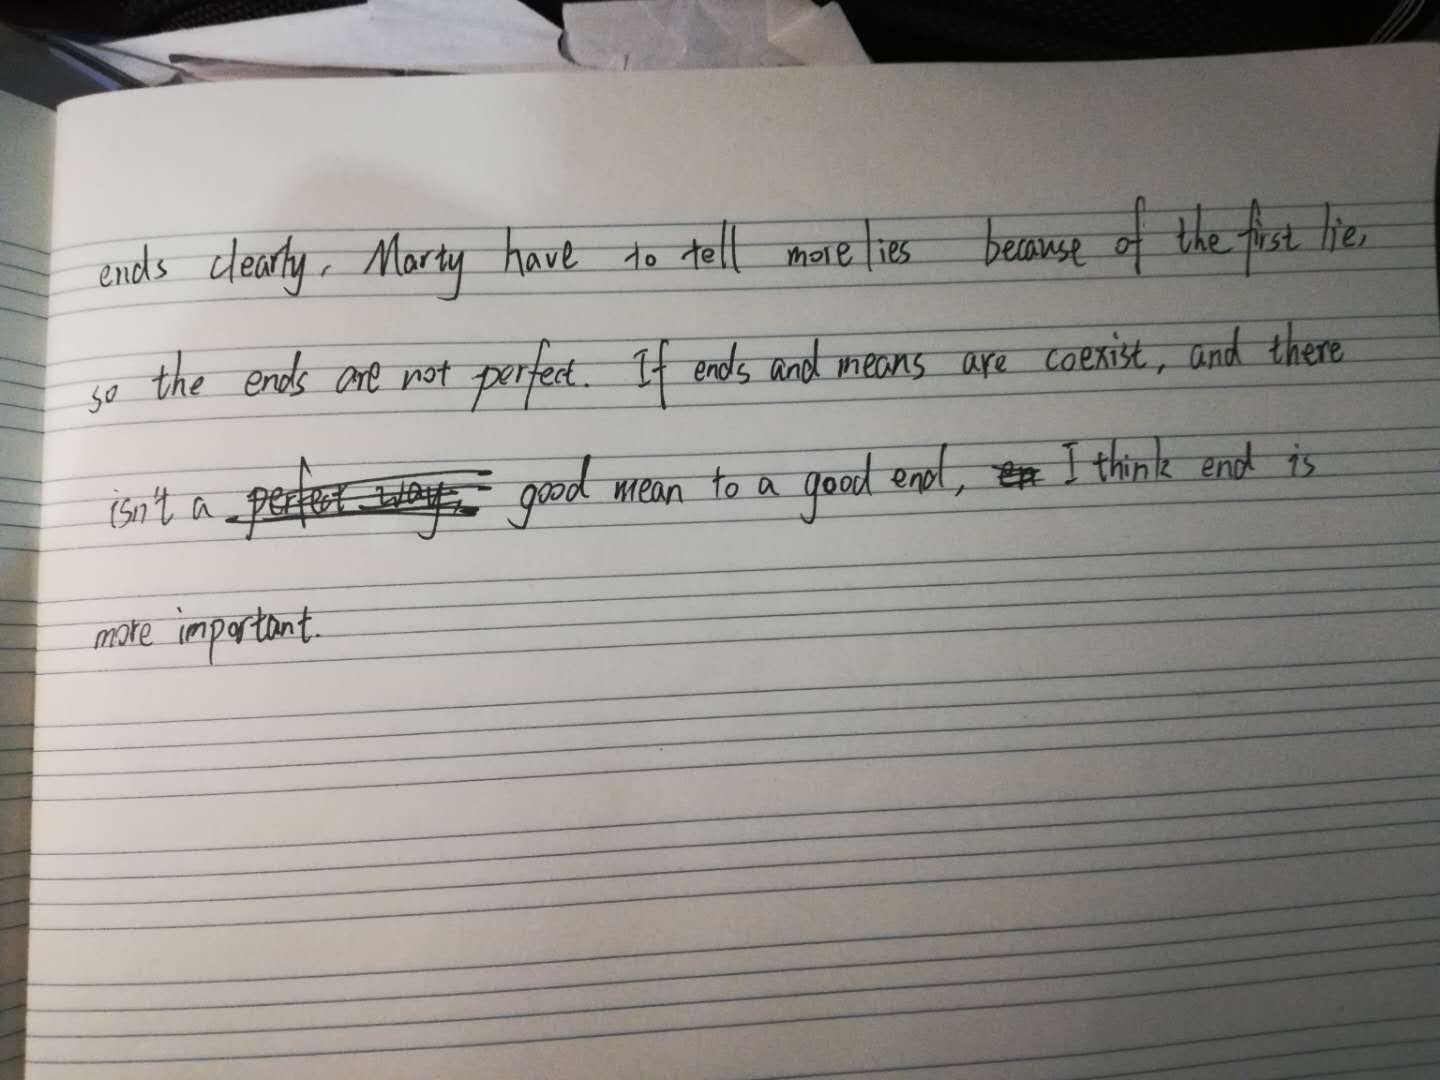 ends clearly. Marty have to tell more lies because of the first lie,
so the ends are not perfect. If ends and means are coexist, and there
isn't a perfect way, good mean to a good end, en I think end is
more important.